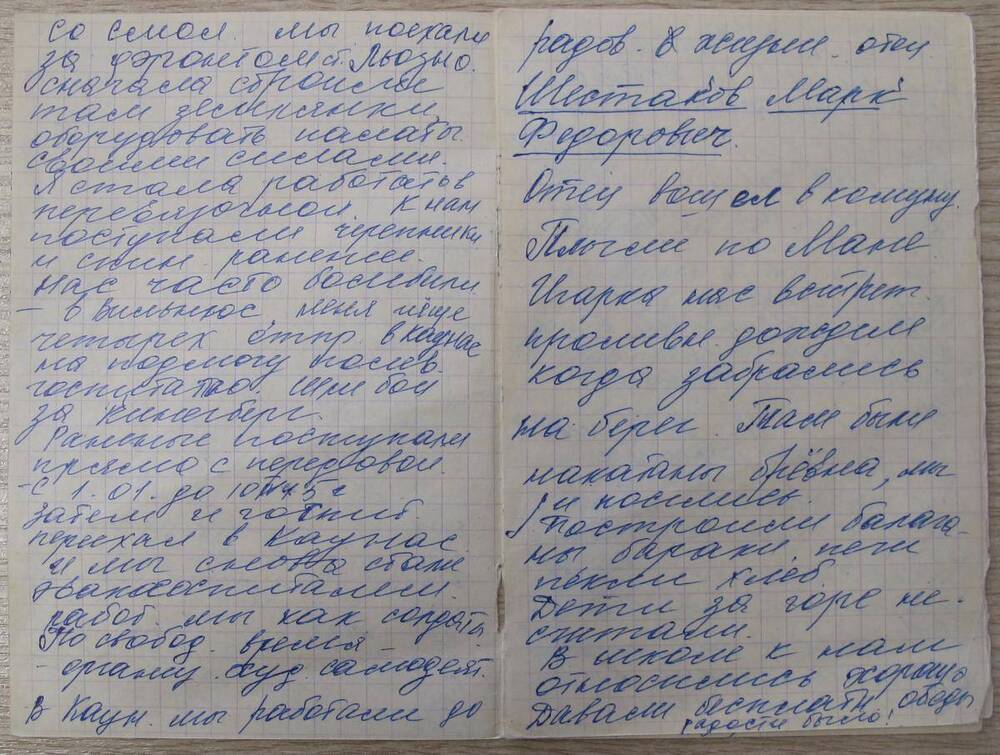 со Смол. мы поехали
за фронтом ст. Льозно.
сначала строили
там землянки,
оборудовать палаты
своими силами.
Я стала работать в
перевязочной. К нам
поступали черепники
и спин. ранение.
Нас часто бомбили.
– в Вильнюс меня и еще
четырех отпр. в Каунас
на подмогу полев.
госпиталю Шли бои
за Кинегсберг.
Раненые поступали
прямо с передовой.
– с 1.01. до
Затем и госпит
переехал в Каунас
и мы снова стали
эвакогоспиталем.
работ. мы как солдаты.
По свобод. время –
– органиу. худ. самодеят.
В Каун. мы работали до
радов. в жизни. отец
Шестаков Марк
Федорович.
Отец вошел в комуну.
Плыли по Мане
Игарка нас встрет.
проливн. дождем
когда забрались
на берег. Там были
накатаны брёвна, мы
и носились.
Построили балага-
ны бараки, печи
пекли хлеб.
Дети за горе не
считали.
В школе к нам
относились хорошо
Давали бесплатн. обеды
радости было!